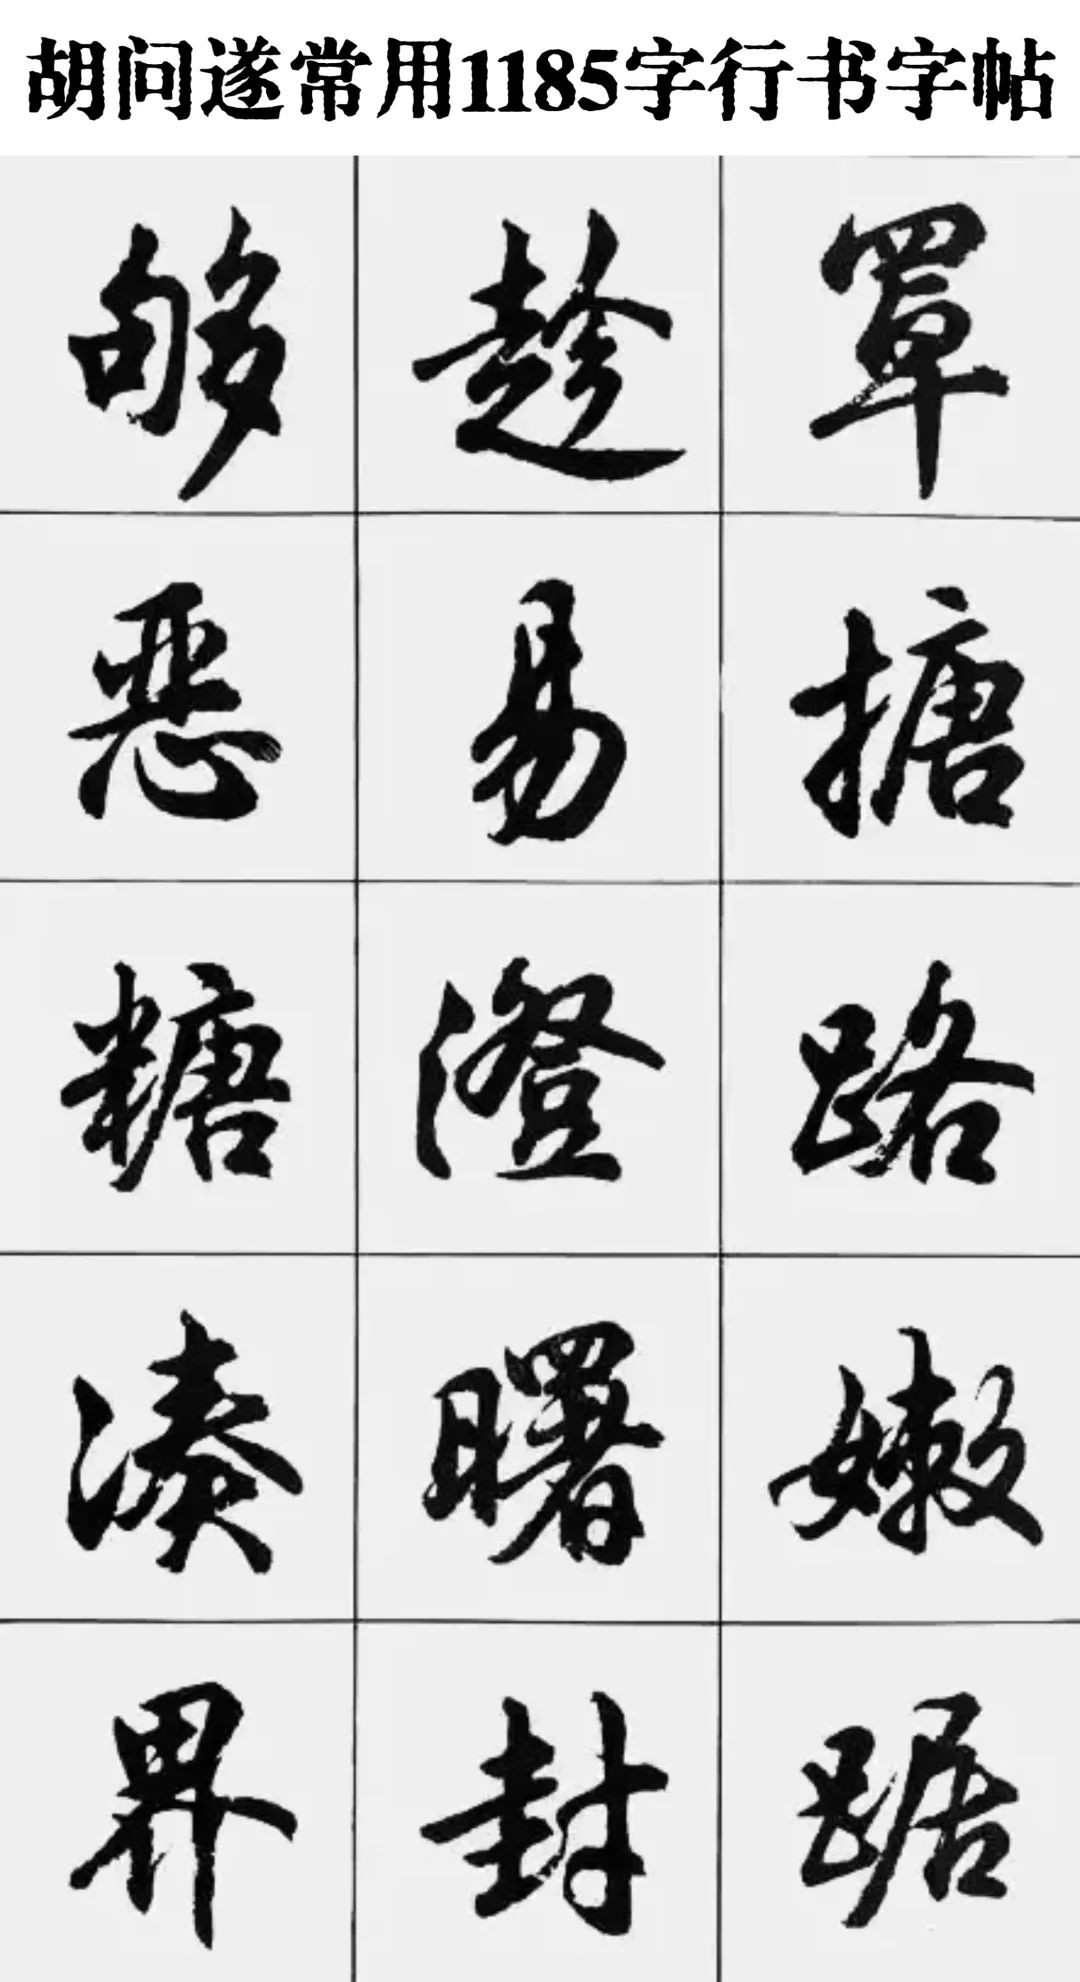 胡问遂常用1185字行书字帖
够趁罩
恶易搪
糖澄路
凑曙嫩
界封踞